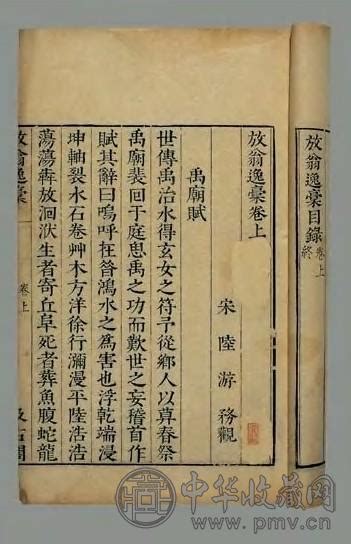 放翁逸稾目錄卷上
終
放翁逸稾卷上
宋 陸 游 務觀
禹廟賦
世傳禹治水得玄女之符予從鄉人以㝷春祭
禹廟裴回于庭思禹之功而歎世之妄稽首作
賦其辭曰嗚呼在昔鴻水之為害也浮乾端浸
坤軸裂水石卷艸木方洋徐行瀰漫平陸浩浩
蕩蕩犇放洄洑生者寄丘阜死者葬魚腹蛇龍
放翁逸稾
卷上
汲古閣
中华收藏网
www.pmv.cn